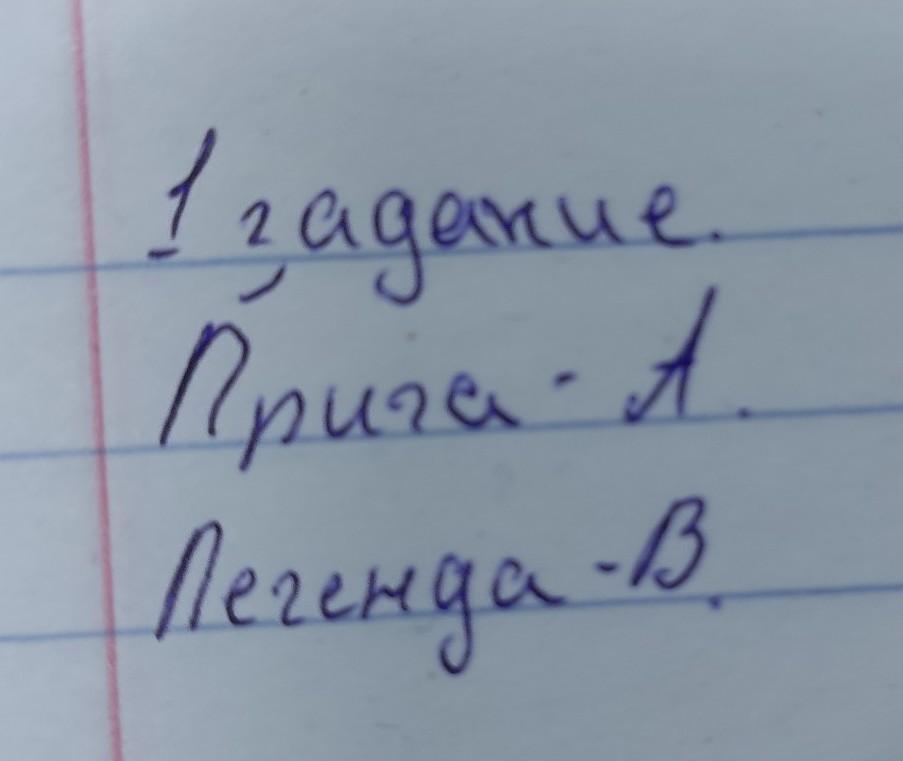 1 задание.
Прича - А.
Легенда - В.